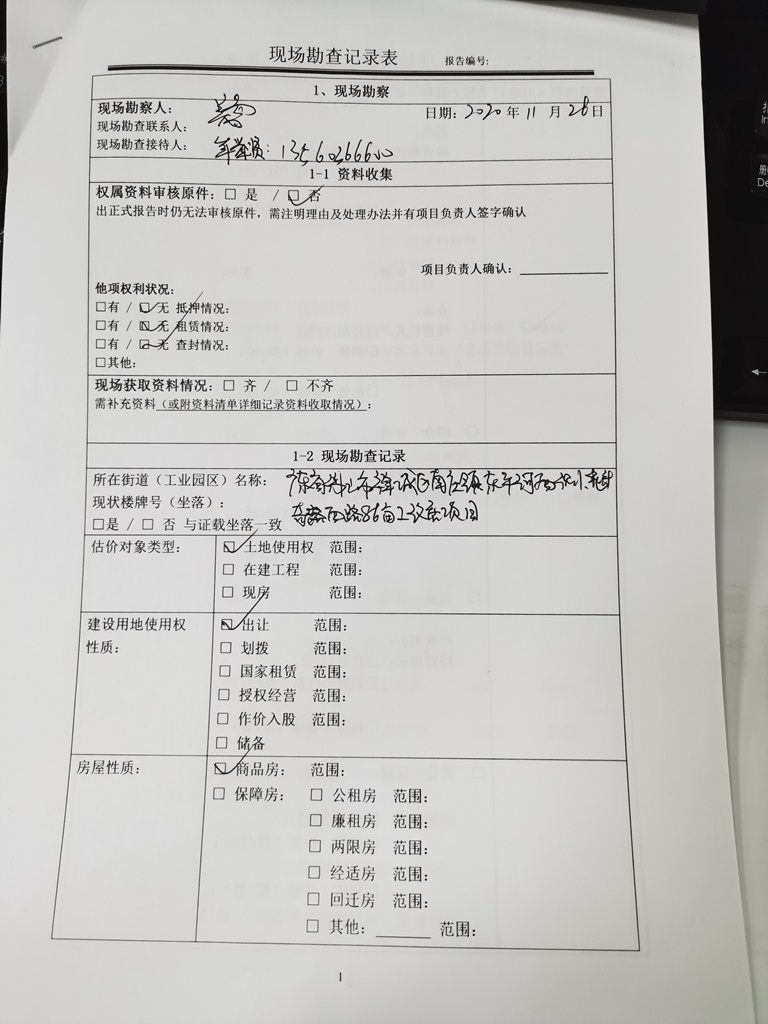 现场勘查记录表 报告编号:
1、现场勘察
现场勘察人: 日期: 2020 年 11 月 28 日
现场勘查联系人:
现场勘查接待人:
1-1 资料收集
权属资料审核原件: □ 是 / ☑ 否
出正式报告时仍无法审核原件，需注明理由及处理办法并有项目负责人签字确认
项目负责人确认: ________
他项权利状况:
□有 / ☑ 无 抵押情况:
□有 / ☑ 无 租赁情况:
□有 / ☑ 无 查封情况:
□其他:
现场获取资料情况: □ 齐/ □ 不齐
需补充资料(或附资料清单详细记录资料收取情况):
1-2 现场勘查记录
所在街道（工业园区）名称: 广东省佛山市禅城区南庄镇东平河
现状楼牌号（坐落）: 西路86亩工改商项目
□是 / □ 否 与证载坐落一致
估价对象类型: ☑ 土地使用权 范围:
□ 在建工程 范围:
□ 现房 范围:
建设用地使用权性质: ☑ 出让 范围:
□ 划拨 范围:
□ 国家租赁 范围:
□ 授权经营 范围:
□ 作价入股 范围:
□ 储备
房屋性质: ☑ 商品房: 范围:
□ 保障房: □ 公租房 范围:
□ 廉租房 范围:
□ 两限房 范围:
□ 经适房 范围:
□ 回迁房 范围:
□ 其他: ______ 范围:
1